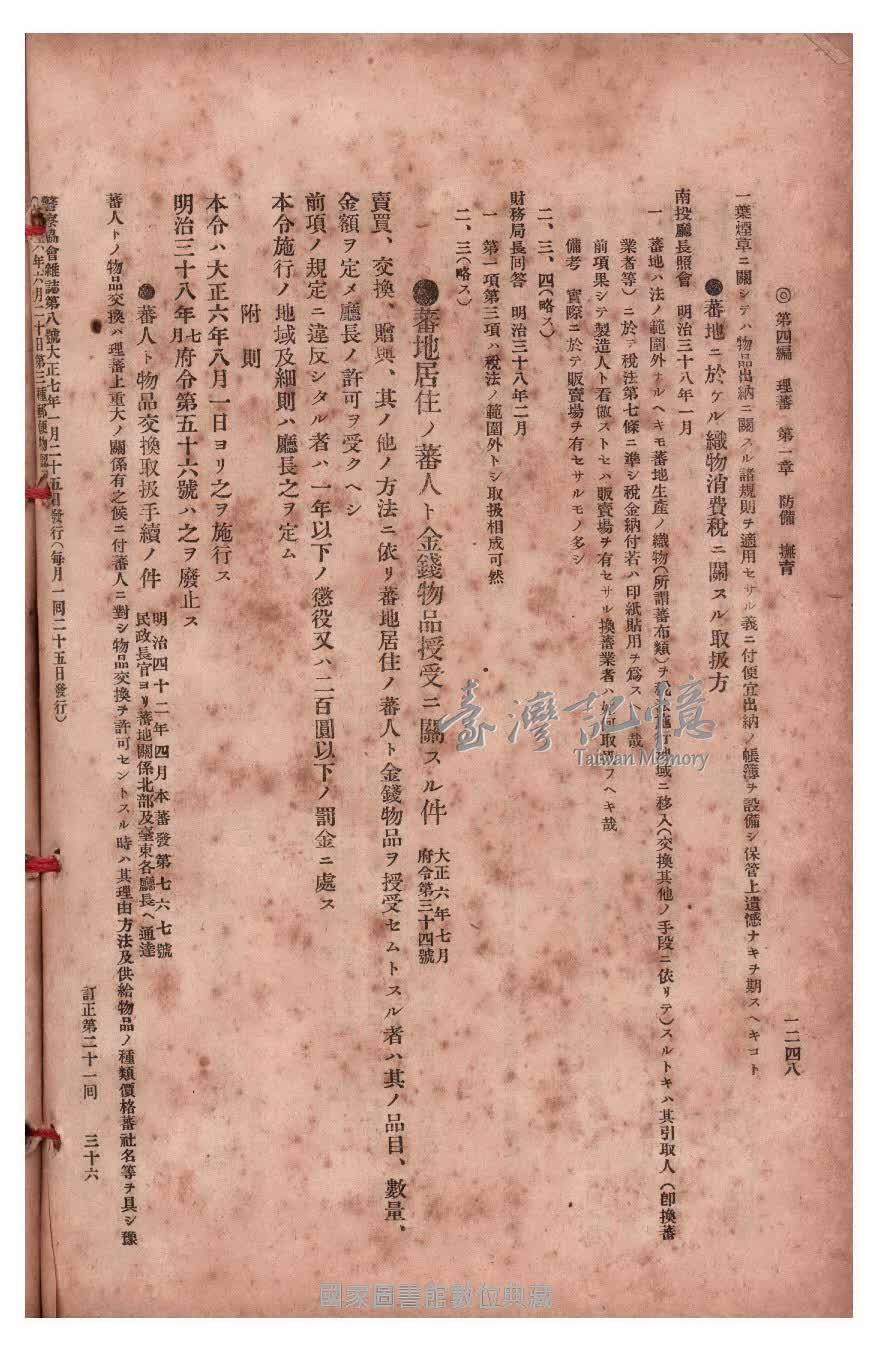 ◎ 第四編 理蕃 第一章 防備 撫育
一二四八
一葉煙草ニ關シテハ物品出納ニ關スル諸規則ヲ適用セサル義ニ付便宜出納ノ帳簿ヲ設備シ保管上遺憾ナキヲ期スヘキコト
●蕃地ニ於ケル織物消費稅ニ關スル取扱方
南投廳長照會 明治三十八年一月
一 蕃地ハ法ノ範圍外ナルヘキモ蕃地生產ノ織物(所謂蕃布類)ヲ 施行地域ニ移入(交換其他ノ手段ニ依リテ)スルトキハ其引取人(卽換蕃
業者等)ニ於テ稅法第七條ニ準シ稅金納付若ハ印紙貼用ヲ爲ス 哉
前項果シテ製造人ト看做ストセハ販賣場ヲ有セサル換蕃業者ハ如何取扱フヘキ哉
備考 實際ニ於テ販賣場ヲ有セサルモノ多シ
二、三、四(略ス)
財務局長回答 明治三十八年二月
一 第一項第三項ハ稅法ノ範圍外トシ取扱相成可然
二、三(略ス)
●蕃地居住ノ蕃人ト金錢物品授受ニ關スル件 大正六年七月
府令第三十四號
賣買、交換、贈與、其ノ他ノ方法ニ依リ蕃地居住ノ蕃人ト金錢物品ヲ授受セムトスル者ハ其ノ品目、數量、
金額ヲ定メ廳長ノ許可ヲ受クヘシ
前項ノ規定ニ違反シタル者ハ一年以下ノ懲役又ハ二百圓以下ノ罰金ニ處ス
本令施行ノ地域及細則ハ廳長之ヲ定ム
附則
本令ハ大正六年八月一日ヨリ之ヲ施行ス
明治三十八年七月府令第五十六號ハ之ヲ廢止ス
●蕃人ト物品交換取扱手續ノ件 明治四十二年四月本蕃發第七六七號
民政長官ヨリ蕃地關係北部及臺東各廳長ヘ通達
蕃人トノ物品交換ハ理蕃上重大ノ關係有之候ニ付蕃人ニ對シ物品交換ヲ許可セントスル時ハ其理由方法及供給物品ノ種類價格蕃社名等ヲ具シ豫
訂正第二十一回 三十六
警察協會雜誌第八號大正七年一月二十五日發行(每月一回二十五日發行)
六年六月二十日第三種郵便物認
臺灣記憶
Taiwan Memory
國家圖書館數位典藏